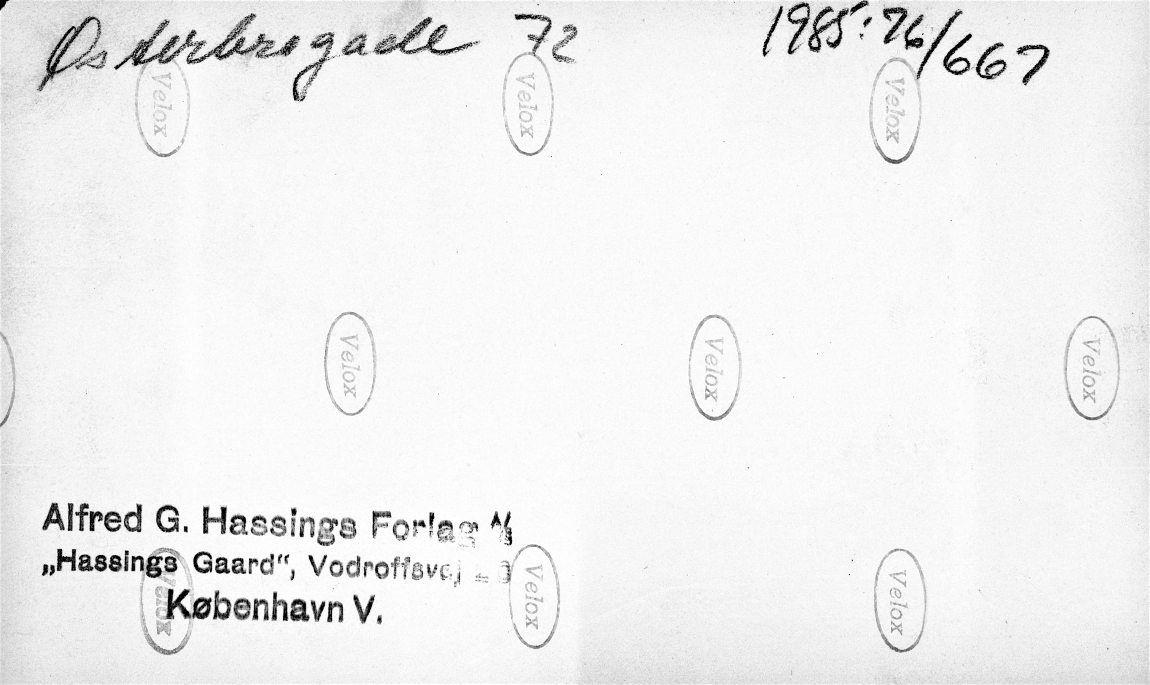 Østerbrogade 72
1985:76/667
Velox Velox Velox
Velox Velox Velox
Alfred G. Hassings Forlag A/S
„Hassings Gaard“, Vodroffsvej
København V.
Velox Velox Velox